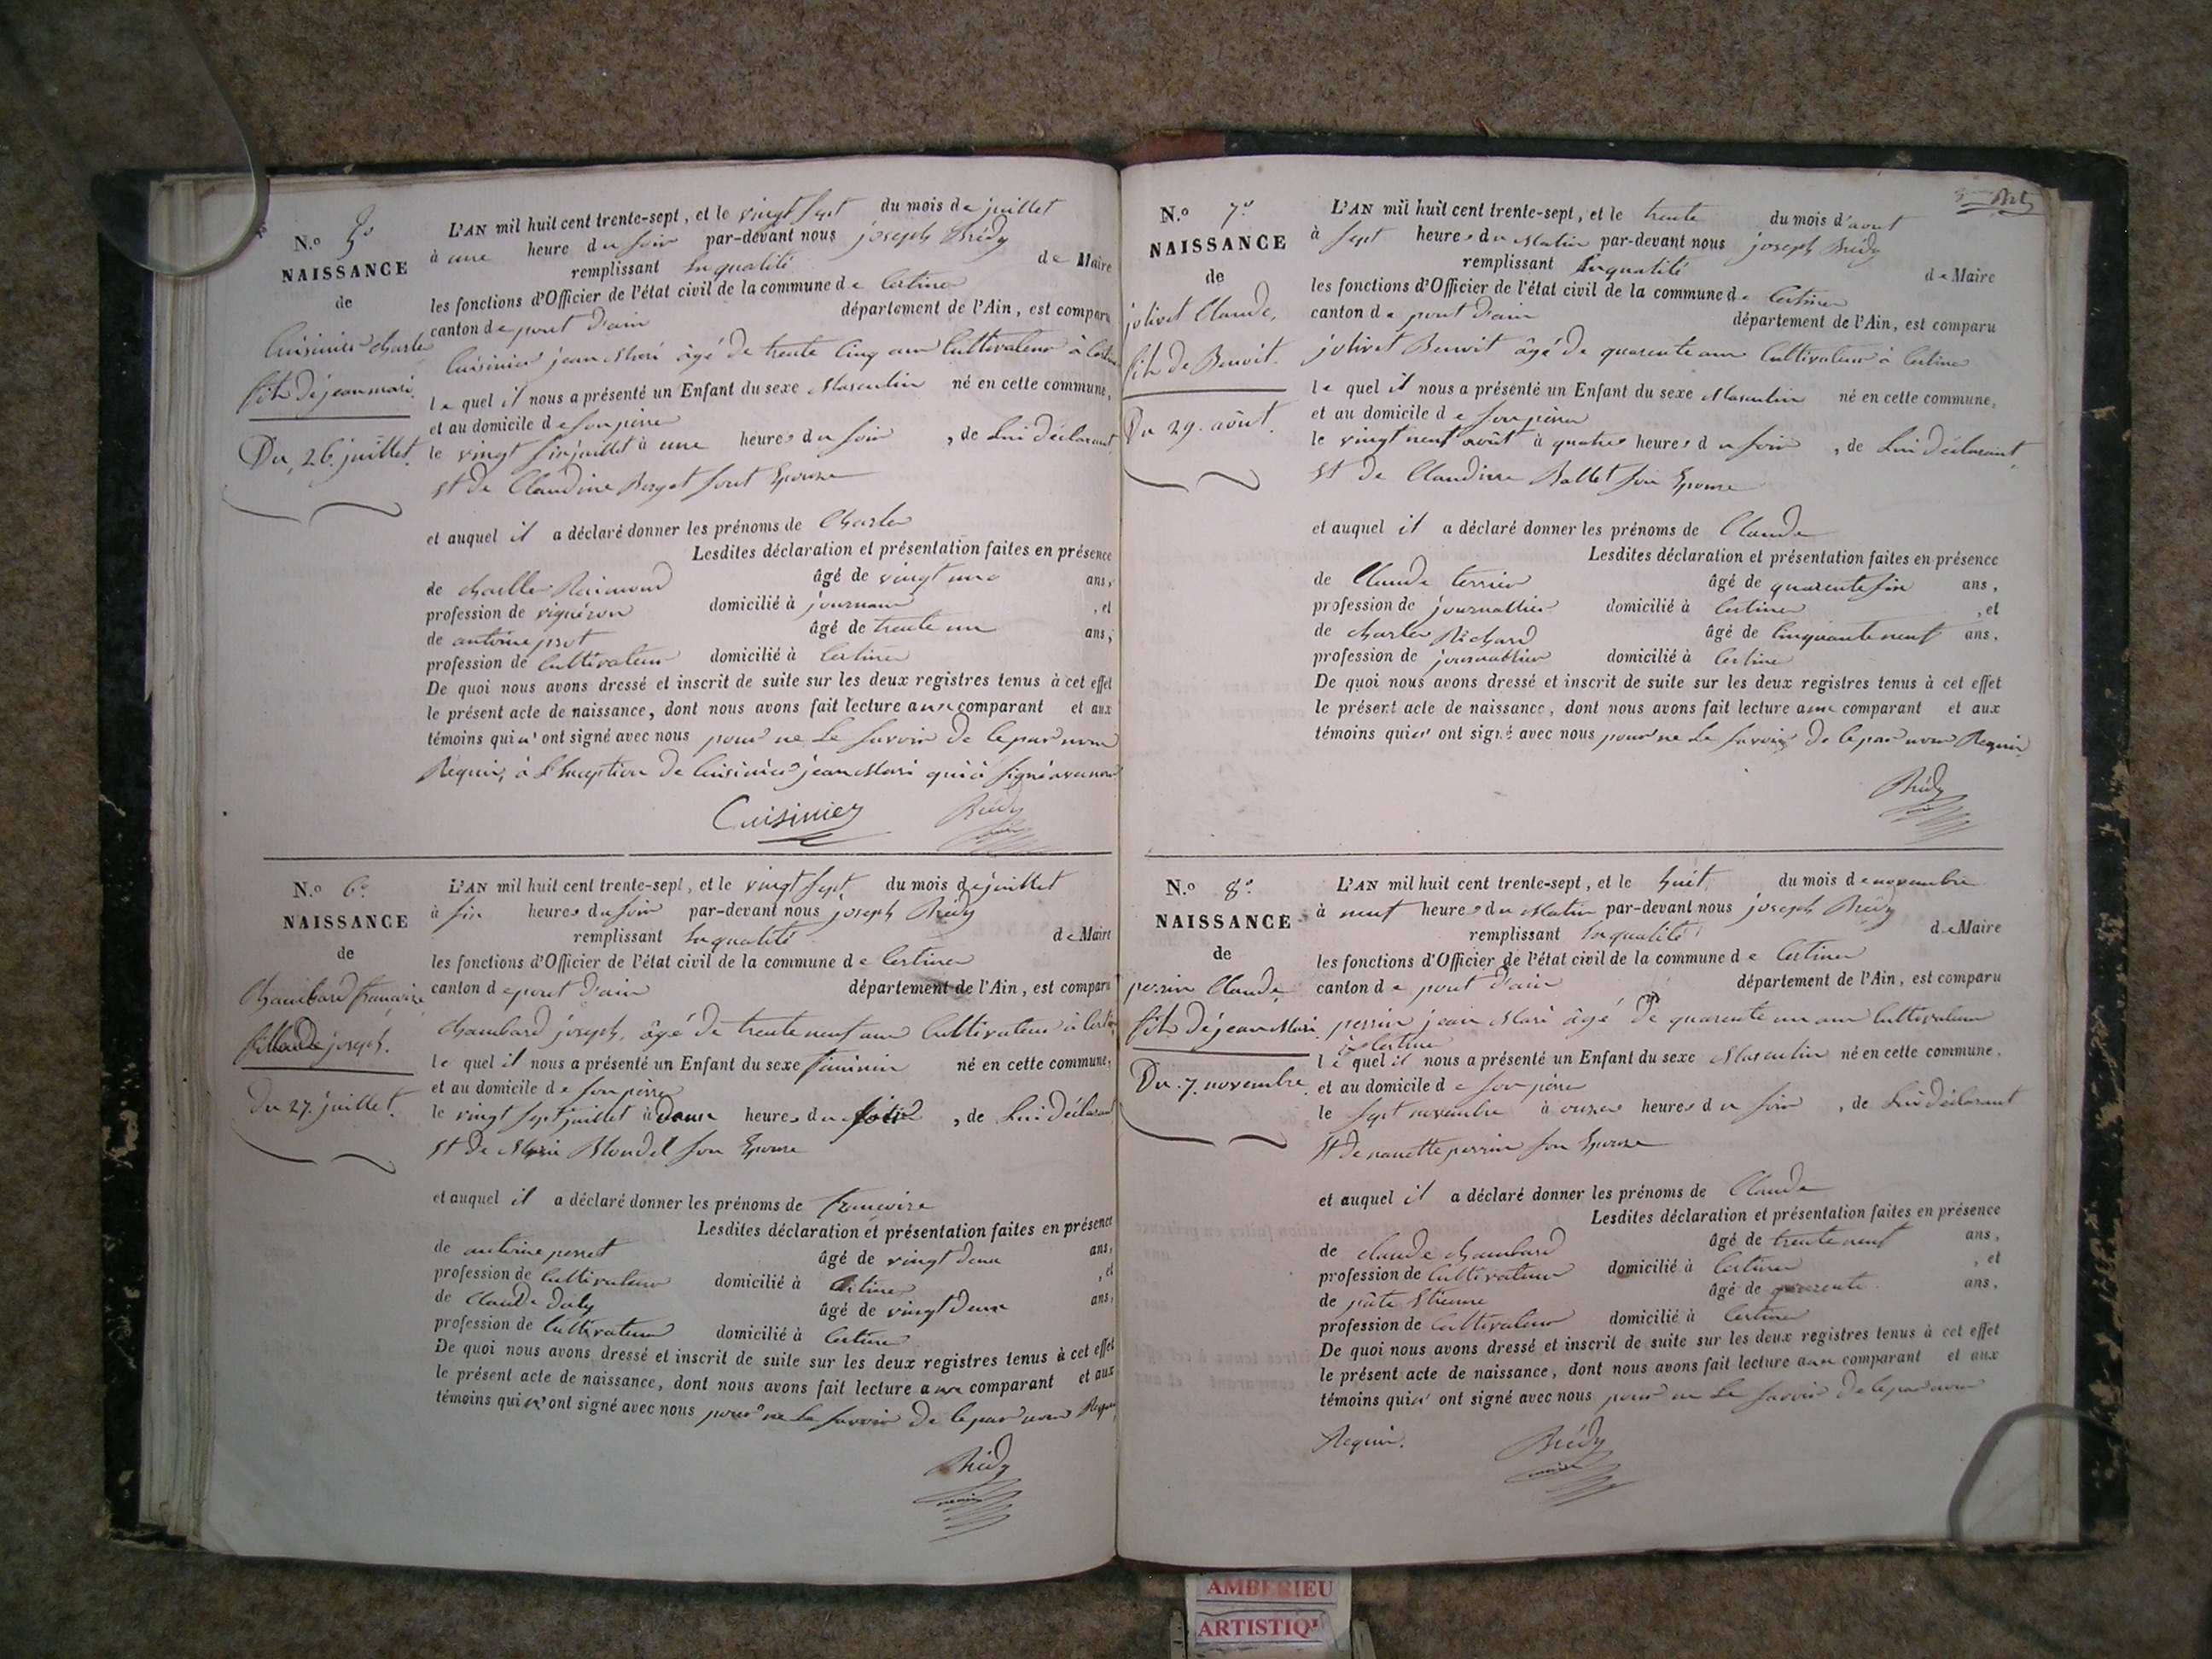 N.o 5o
NAISSANCE
de
Cuisinier charle
fils de jean mari.
Du, 26. juillet.
L'AN mil huit cent trente-sept, et le vingt sept du mois de juillet
à une heure du soir par-devant nous joseph Brédy
remplissant En qualité de Maire
les fonctions d'Officier de l'état civil de la commune de Certines
canton de pont d'ain département de l'Ain, est comparu
Cuisinier jean Mari âgé de trente cinq ans Cultivateur à
le quel il nous a présenté un Enfant du sexe Masculin né en cette commune,
et au domicile de son père
le vingt six juillet à une heures du soir, de Lui déclarant
Et de Claudine sont Epouse
et auquel il a déclaré donner les prénoms de Charles
Lesdites déclaration et présentation faites en présence
de Raimond âgé de vingt ans,
profession de vigneron domicilié à journans, et
de antoine âgé de trente un ans,
profession de Cultivateur domicilié à Certines
De quoi nous avons dressé et inscrit de suite sur les deux registres tenus à cet effet
le présent acte de naissance, dont nous avons fait lecture aux comparant et aux
témoins qui n'ont signé avec nous pour ne Le savoir de le par nous
Requis, à L'Exception de Cuisinier jean Mari qui à signé avec nous
Cuisinier Brédy
N.o 6o
NAISSANCE
de
Chambard françoise
fille de joseph.
Du 27. juillet.
L'AN mil huit cent trente-sept, et le vingt sept du mois de juillet
à six heures du soir par-devant nous joseph Brédy
remplissant En qualité de Maire
les fonctions d'Officier de l'état civil de la commune de Certines
canton de pont d'ain département de l'Ain, est comparu
Chambard joseph, âgé de trente neuf ans Cultivateur à
le quel il nous a présenté un Enfant du sexe féminin né en cette commune,
et au domicile de son père
le vingt sept juillet à heures du, de Lui déclarant
Et de Marie Blondel son Epouse
et auquel il a déclaré donner les prénoms de françoise
Lesdites déclaration et présentation faites en présence
de antoine perret âgé de vingt deux ans,
profession de Cultivateur domicilié à Certines, et
de Claude âgé de vingt deux ans,
profession de Cultivateur domicilié à Certines
De quoi nous avons dressé et inscrit de suite sur les deux registres tenus à cet effet
le présent acte de naissance, dont nous avons fait lecture aux comparant et aux
témoins qui n'ont signé avec nous pour ne Le savoir de le par nous Requis
Brédy
N.o 7o
NAISSANCE
de
jolivet Claude,
fils de Benoit.
Du 29. août.
L'AN mil huit cent trente-sept, et le trente du mois d'aout
à sept heures du Matin par-devant nous joseph Brédy
remplissant En qualité de Maire
les fonctions d'Officier de l'état civil de la commune de Certines
canton de pont d'ain département de l'Ain, est comparu
jolivet Benoit âgé de quarente ans Cultivateur à Certines
le quel il nous a présenté un Enfant du sexe Masculin né en cette commune,
et au domicile de son père
le vingt neuf août à quatre heures du soir, de Lui déclarant,
Et de Claudine Ballet son Epouse
et auquel il a déclaré donner les prénoms de Claude
Lesdites déclaration et présentation faites en présence
de Claude terrier âgé de quarente six ans,
profession de journallier domicilié à Certines, et
de charles Richard âgé de Cinquante neuf ans,
profession de journallier domicilié à Certines
De quoi nous avons dressé et inscrit de suite sur les deux registres tenus à cet effet
le présent acte de naissance, dont nous avons fait lecture aux comparant et aux
témoins qui n'ont signé avec nous pour ne Le savoir de le par nous Requis
Brédy
N.o 8o
NAISSANCE
de
perrin Claude,
fils de jean Mari
Du 7. novembre.
L'AN mil huit cent trente-sept, et le huit du mois de novembre
à neuf heures du Matin par-devant nous joseph Brédy
remplissant En qualité de Maire
les fonctions d'Officier de l'état civil de la commune de Certines
canton de pont d'ain département de l'Ain, est comparu
perrin jean Mari âgé de quarente un ans Cultivateur
à Certines
le quel il nous a présenté un Enfant du sexe Masculin né en cette commune,
et au domicile de son père
le sept novembre à onze heures du soir, de Lui déclarant
Et de nanette perrin son Epouse
et auquel il a déclaré donner les prénoms de Claude
Lesdites déclaration et présentation faites en présence
de claude chambard âgé de trente neuf ans,
profession de Cultivateur domicilié à Certines, et
de pâte Etienne âgé de quarente ans,
profession de Cultivateur domicilié à Certines
De quoi nous avons dressé et inscrit de suite sur les deux registres tenus à cet effet
le présent acte de naissance, dont nous avons fait lecture aux comparant et aux
témoins qui n'ont signé avec nous pour ne Le savoir de le par nous
Requis. Brédy
AMBERIEU
ARTISTIQ